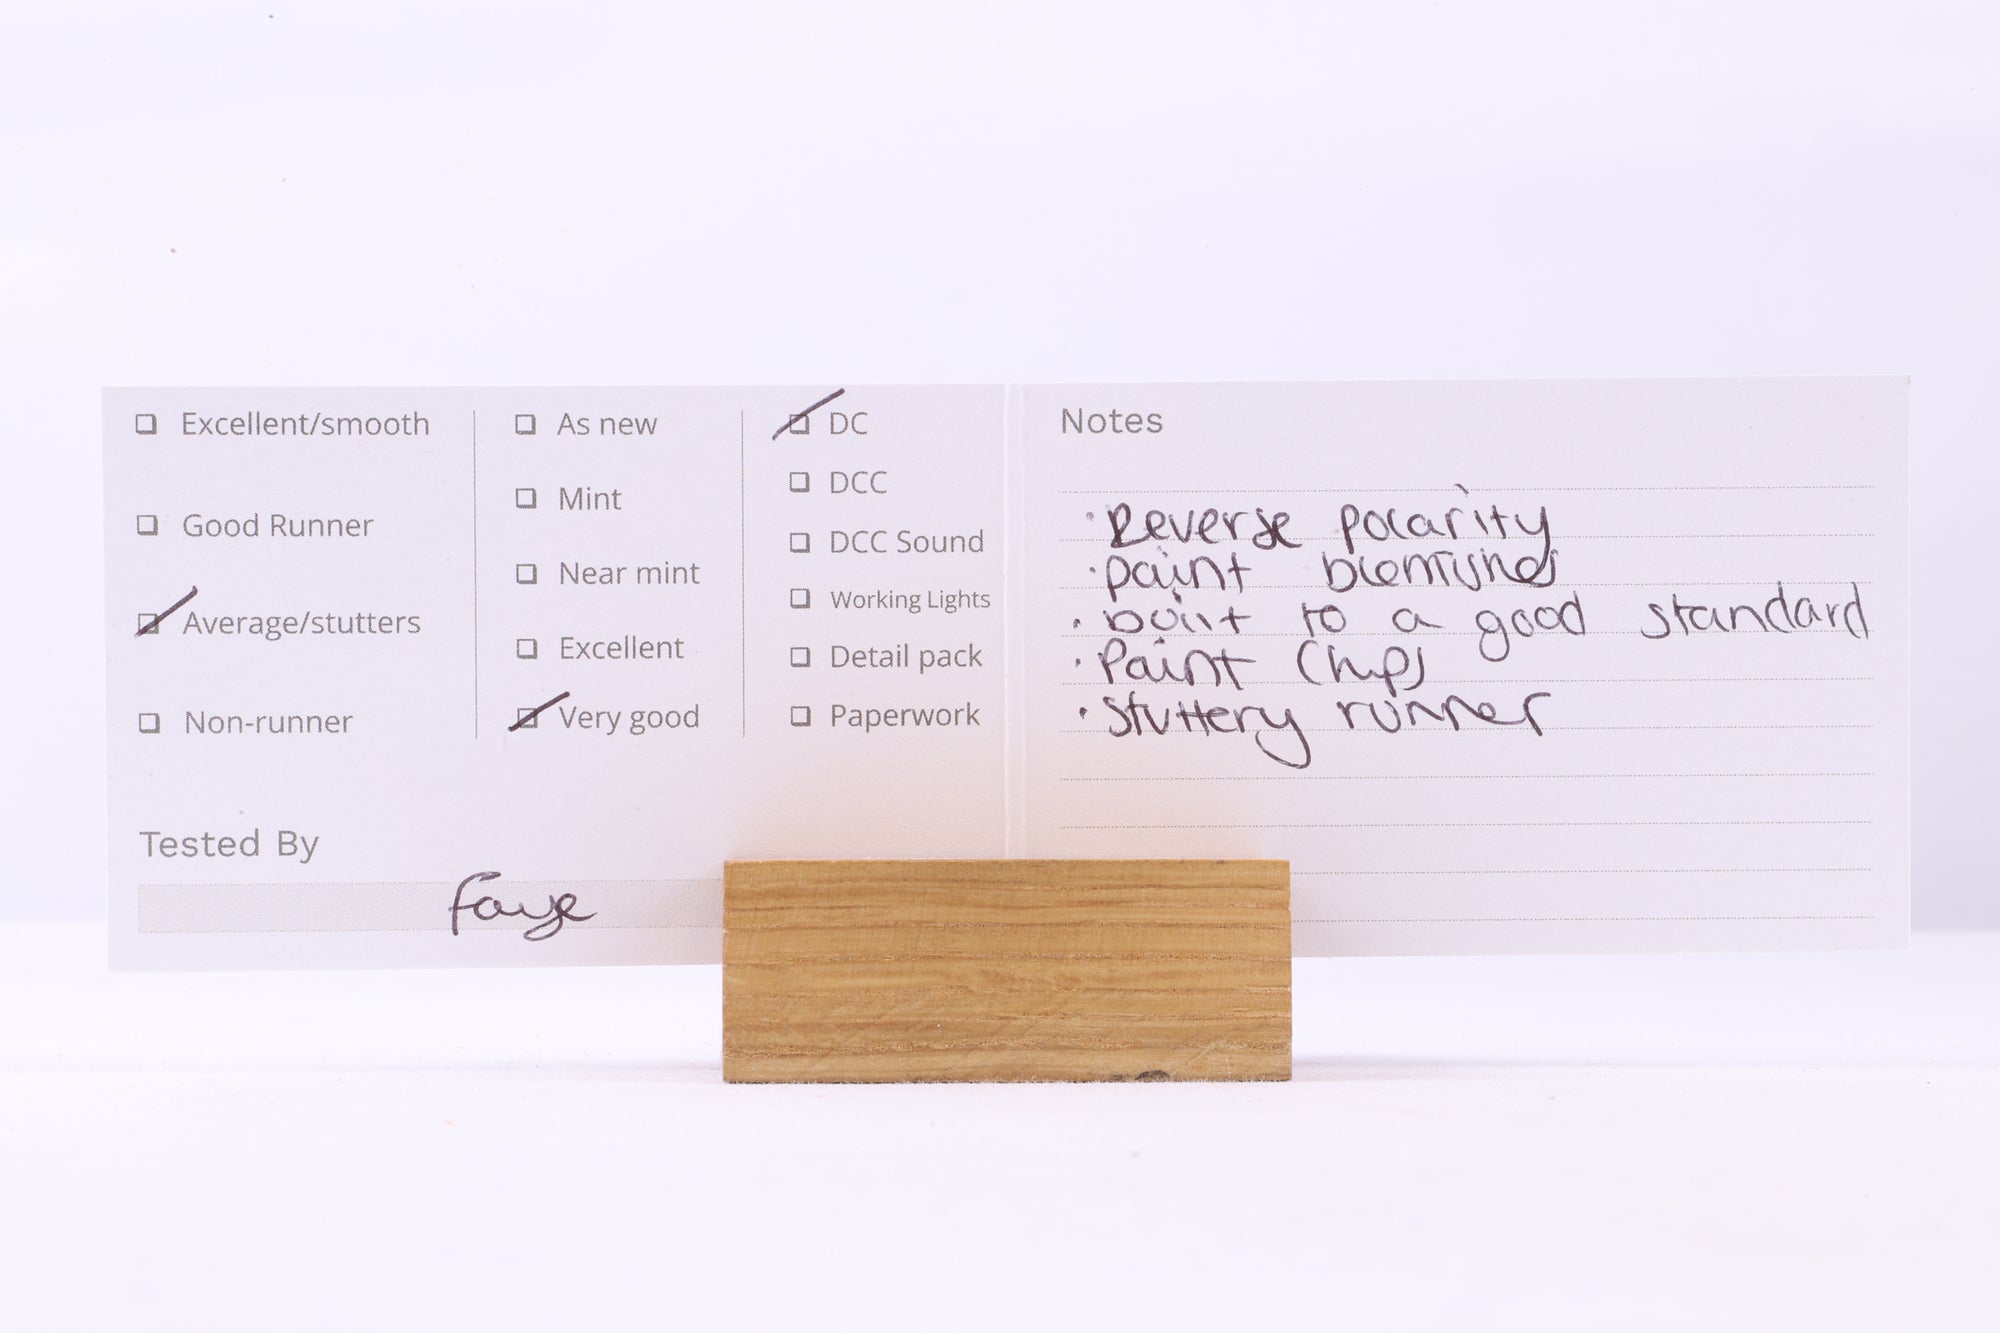 Excellent/smooth
Good Runner
Average/stutters
Non-runner
As new
Mint
Near mint
Excellent
Very good
DC
DCC
DCC Sound
Working Lights
Detail pack
Paperwork
Tested By
Faye
Notes
· Reverse polarity
· paint blemishes
· built to a good standard
· Paint Chips
· Stuttery runner